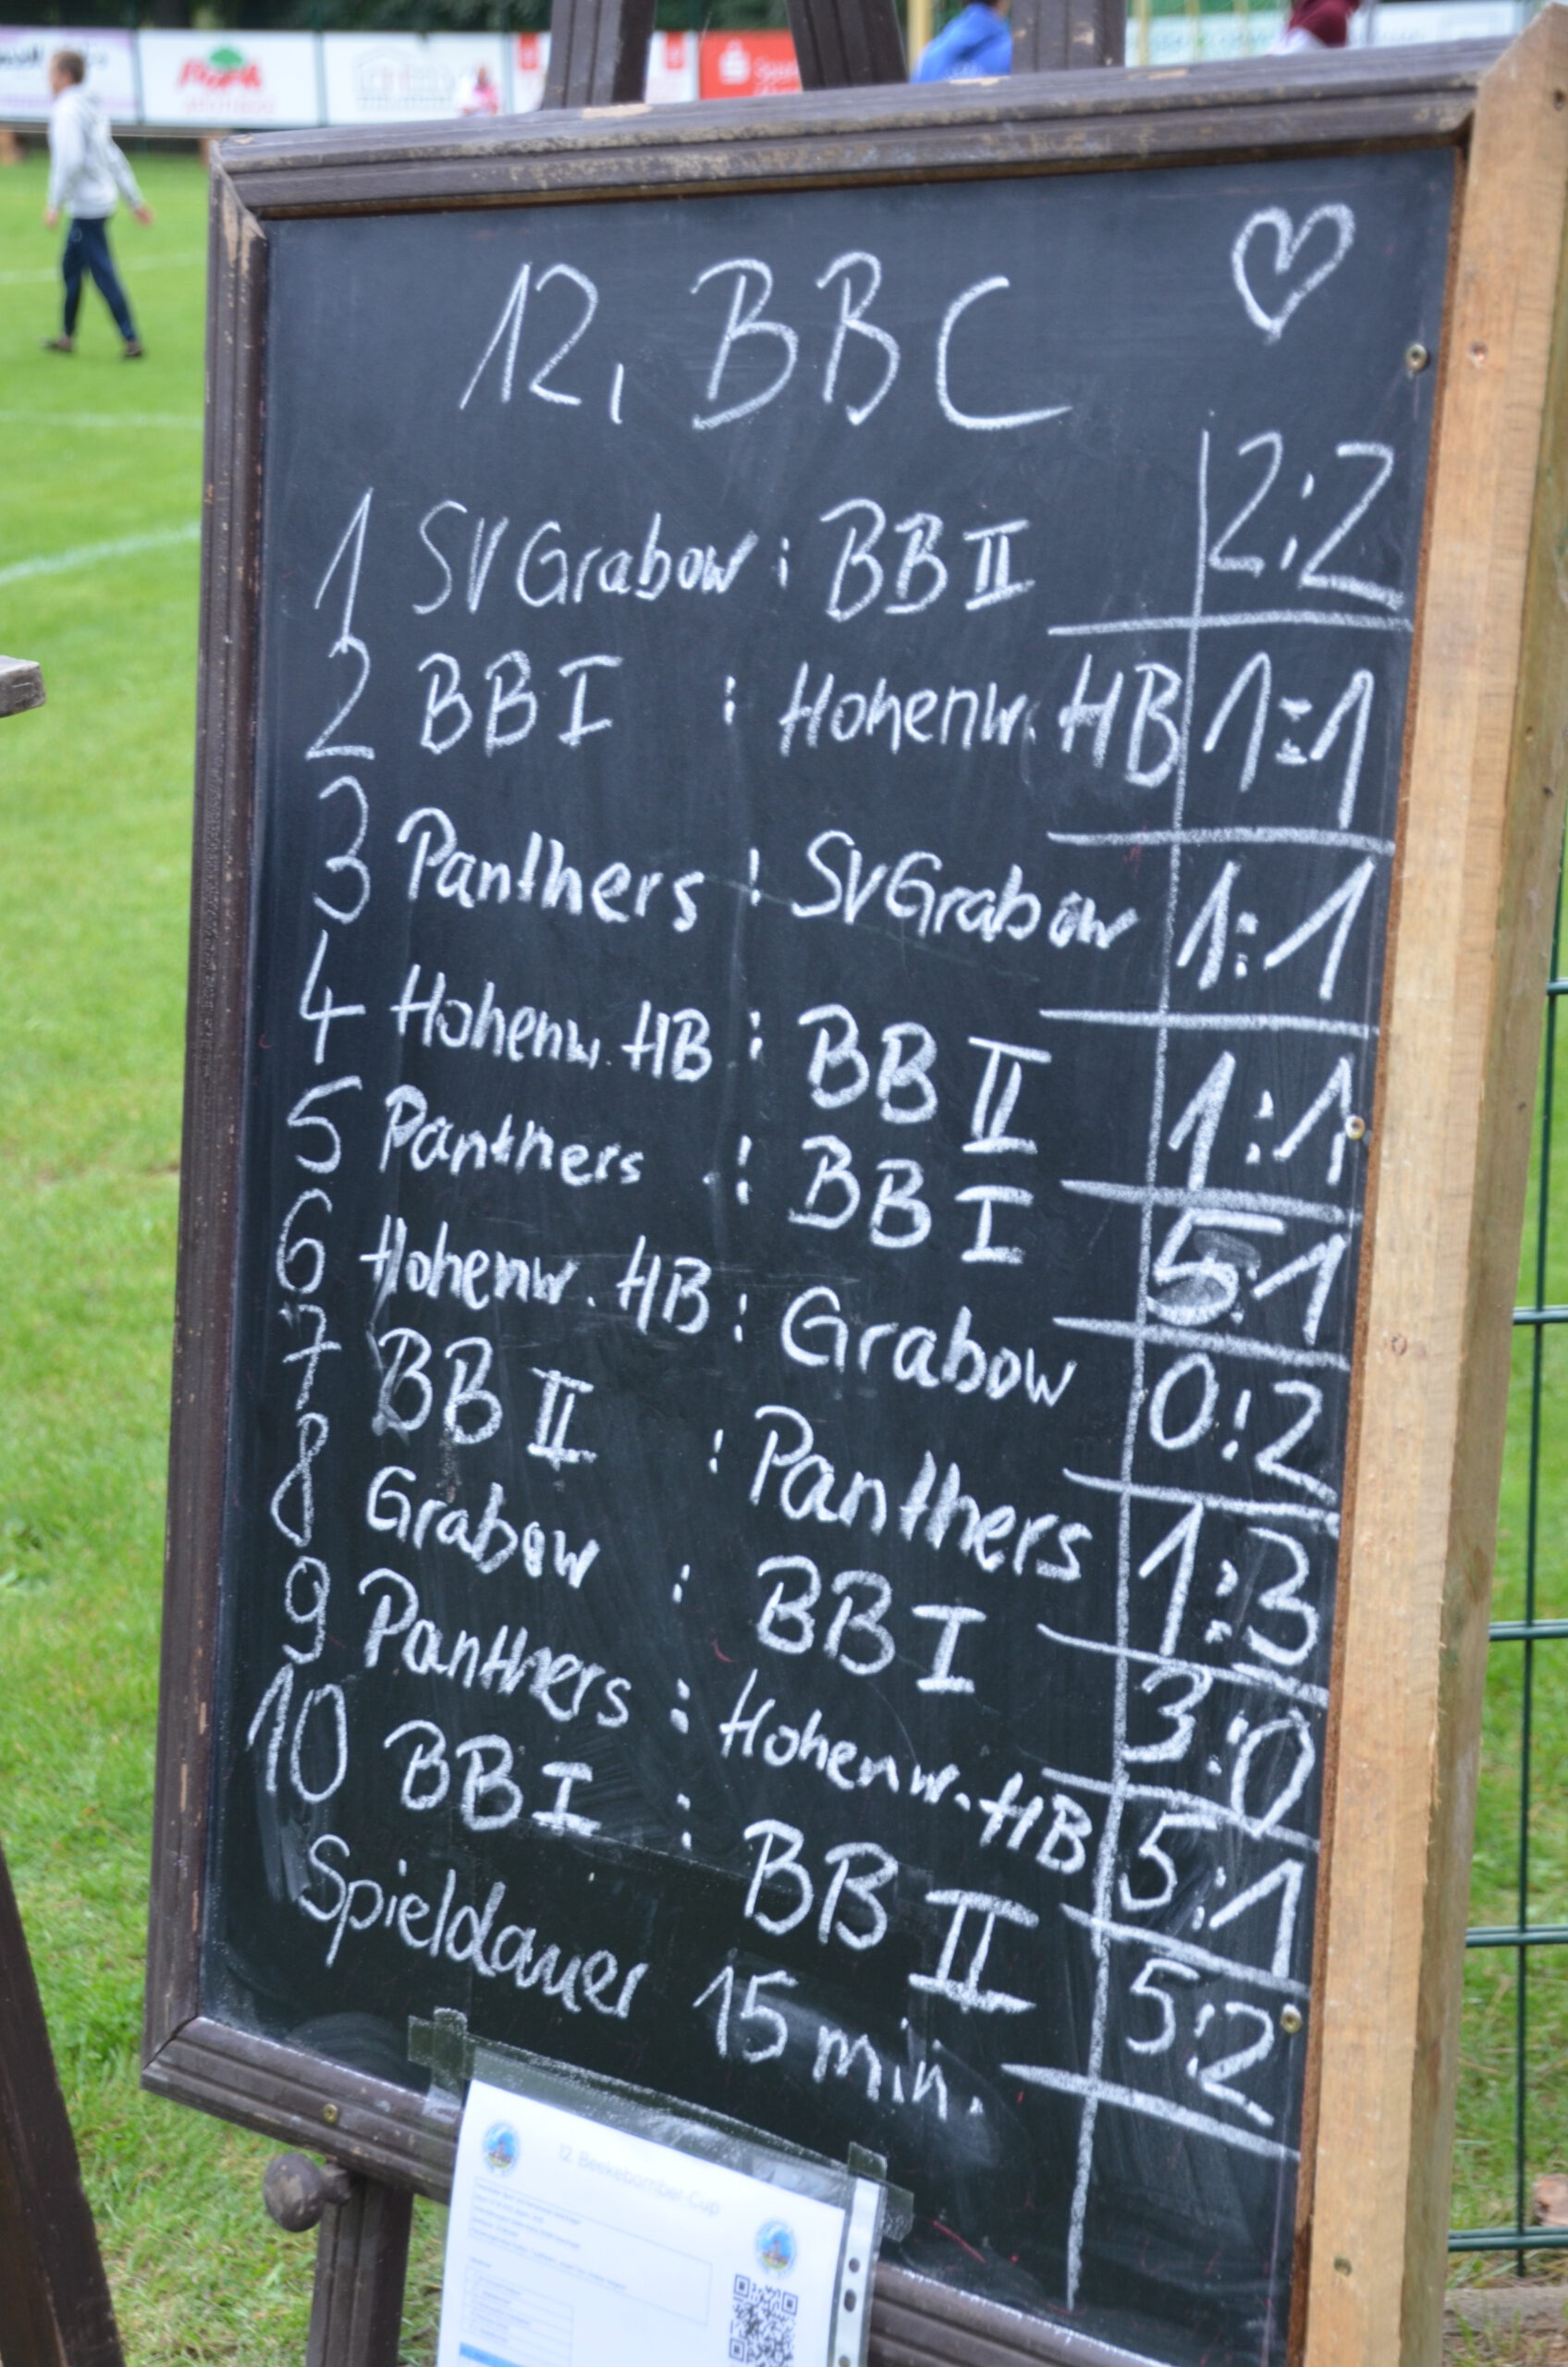 12. BBC
1 SV Grabow : BB II 2:2
2 BB I : Hohenw. HB 1:1
3 Panthers : SV Grabow 1:1
4 Hohenw. HB : BB II 1:1
5 Panthers : BB I 5:1
6 Hohenw. HB : Grabow 0:2
7 BB II : Panthers 1:3
8 Grabow : BB I 3:0
9 Panthers : Hohenw. HB 5:1
10 BB I : BB II 5:2
Spieldauer 15 min.
12. Beekebomber-Cup